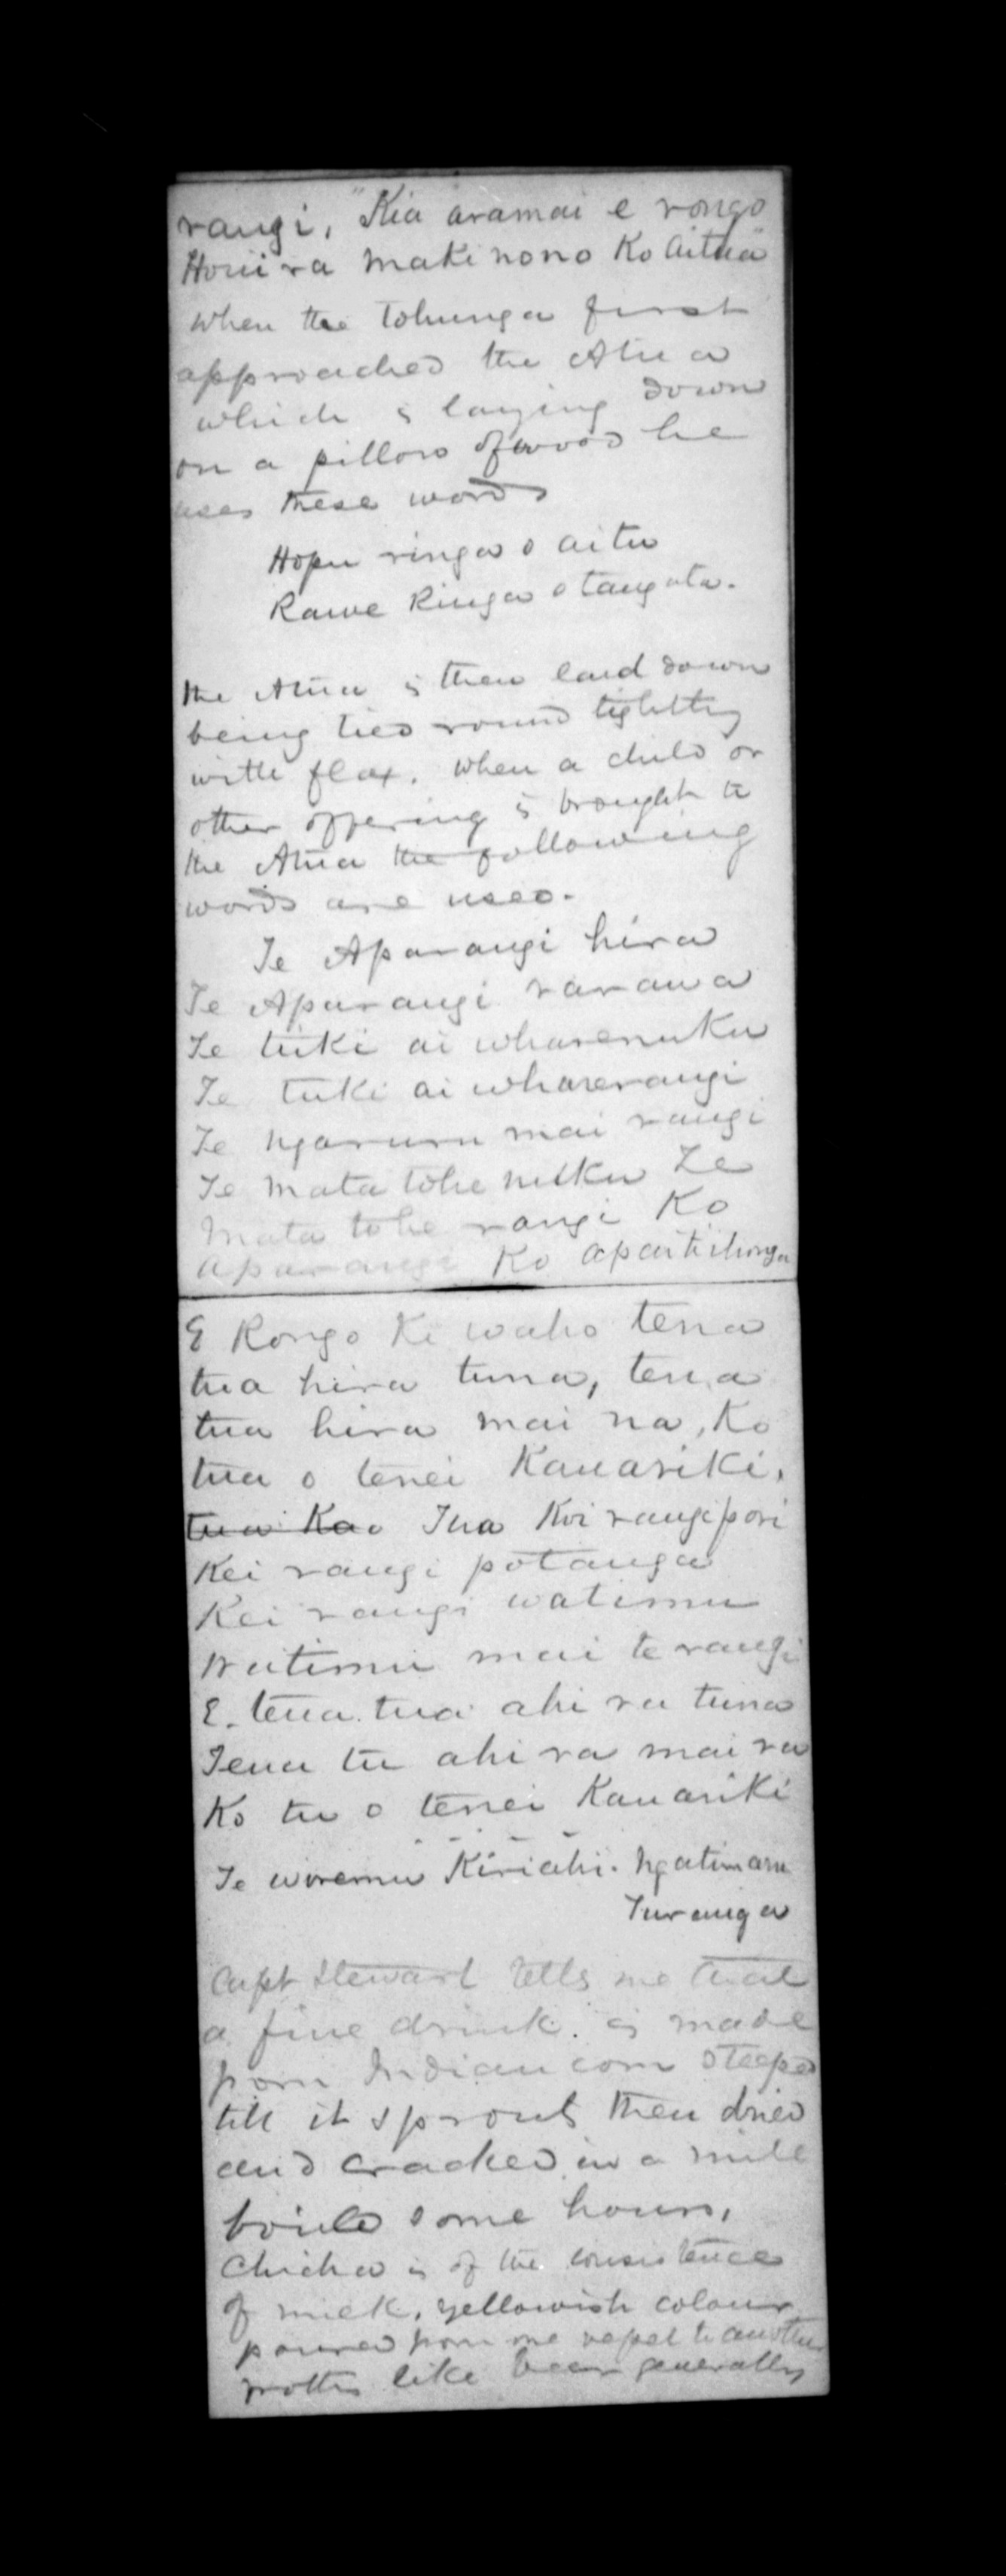 rangi, "Kia aramai e rongo
Houi ra makinono Ko Aitua"
When the Tohunga first
approached the Atua
which is laying down
on a pillow of wood he
uses these words
Hopu ringa o aitu
Rawe Ringa o tangata.
the Atua is then laid down
being tied round tightly
with flax. When a child or
other offering is brought to
the Atua the following
words are used.
Te Aparangi hira
Te Aparangi rarawa
Te tuki ai wharenuku
Te tuki ai wharerangi
Te ngaruru mai rangi
Te mata tohe nuku Te
Mata tohe rangi Ko
Aparangi Ko apaitihonga
E Rongo Ki waho tena
tua hira tuna, tena
tua hira mai na, Ko
tua o tenei Kauariki.
tua Kao Tua Koi rangipori
Kei rangi potanga
Kei rangi watimu
Watimu mai te rangi
E. tena tua ahi ra tuna
Tena tu ahi ra mai ra
Ko tu o tenei Kauariki
Te woremu Kiriahi. Ngatimaru
Turanga
Capt Stewart tells me that
a fine drink is made
from Indian corn steeped
till it sprouts then dried
and cracked in a mill
boiled some hours,
Chicha is of the consistence
of milk, yellowish colour
poured from one vessel to another
froths like beer generally